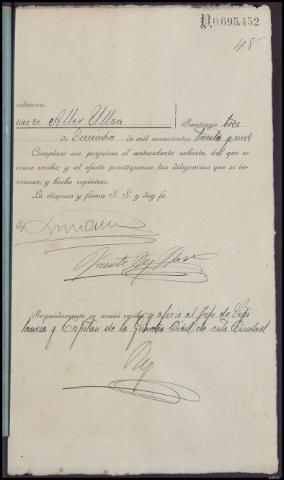 N.0.695.452
48
videncia
Juez Sr. Aller Ulloa
Santiago tres
de Diciembre de mil novecientos treinta y uno
Cúmplase sin perjuicio el antecedente exhorto, del que se
acuse recibo; y al efecto practíquense las diligencias que se in-
teresan; y hecho repórtese.
Lo dispuso y firma S. S. y doy fe.
Seguidamente se acusó recibo y oficia al Jefe de Vigi
lancia y Capitán de la Guardia Civil de esta Ciudad